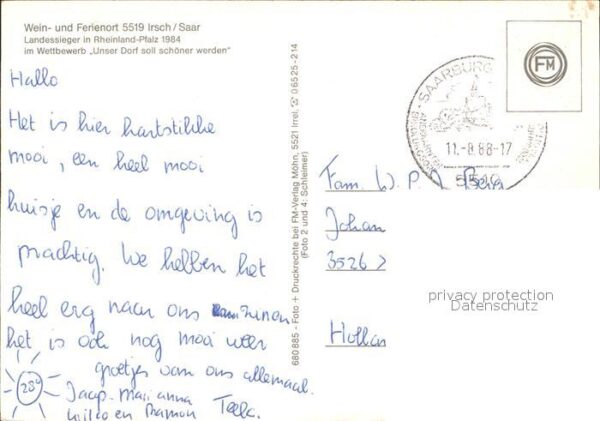 Wein- und Ferienort 5519 Irsch/Saar
Landessieger in Rheinland-Pfalz 1984
im Wettbewerb „Unser Dorf soll schöner werden"
Hallo
Het is hier hartstikke
mooi, een heel mooi
huisje en de omgeving is
prachtig. We hebben het
heel erg naar ons zinnen
het is ook nog mooi weer
28°
groetjes van ons allemaal.
Jaap-Marianna
Wilko en Ramon
680 885 - Foto + Druckrechte bei FM-Verlag Möhn, 5521 Irrel, ☏ 0 65 25-2 14
(Foto 2 und 4: Schleimer)
FM
SAARBURG
11.-8.88-17
5510
Fam. W. P. A Berg
Johan
3526
Hollan
privacy protection
Datenschutz